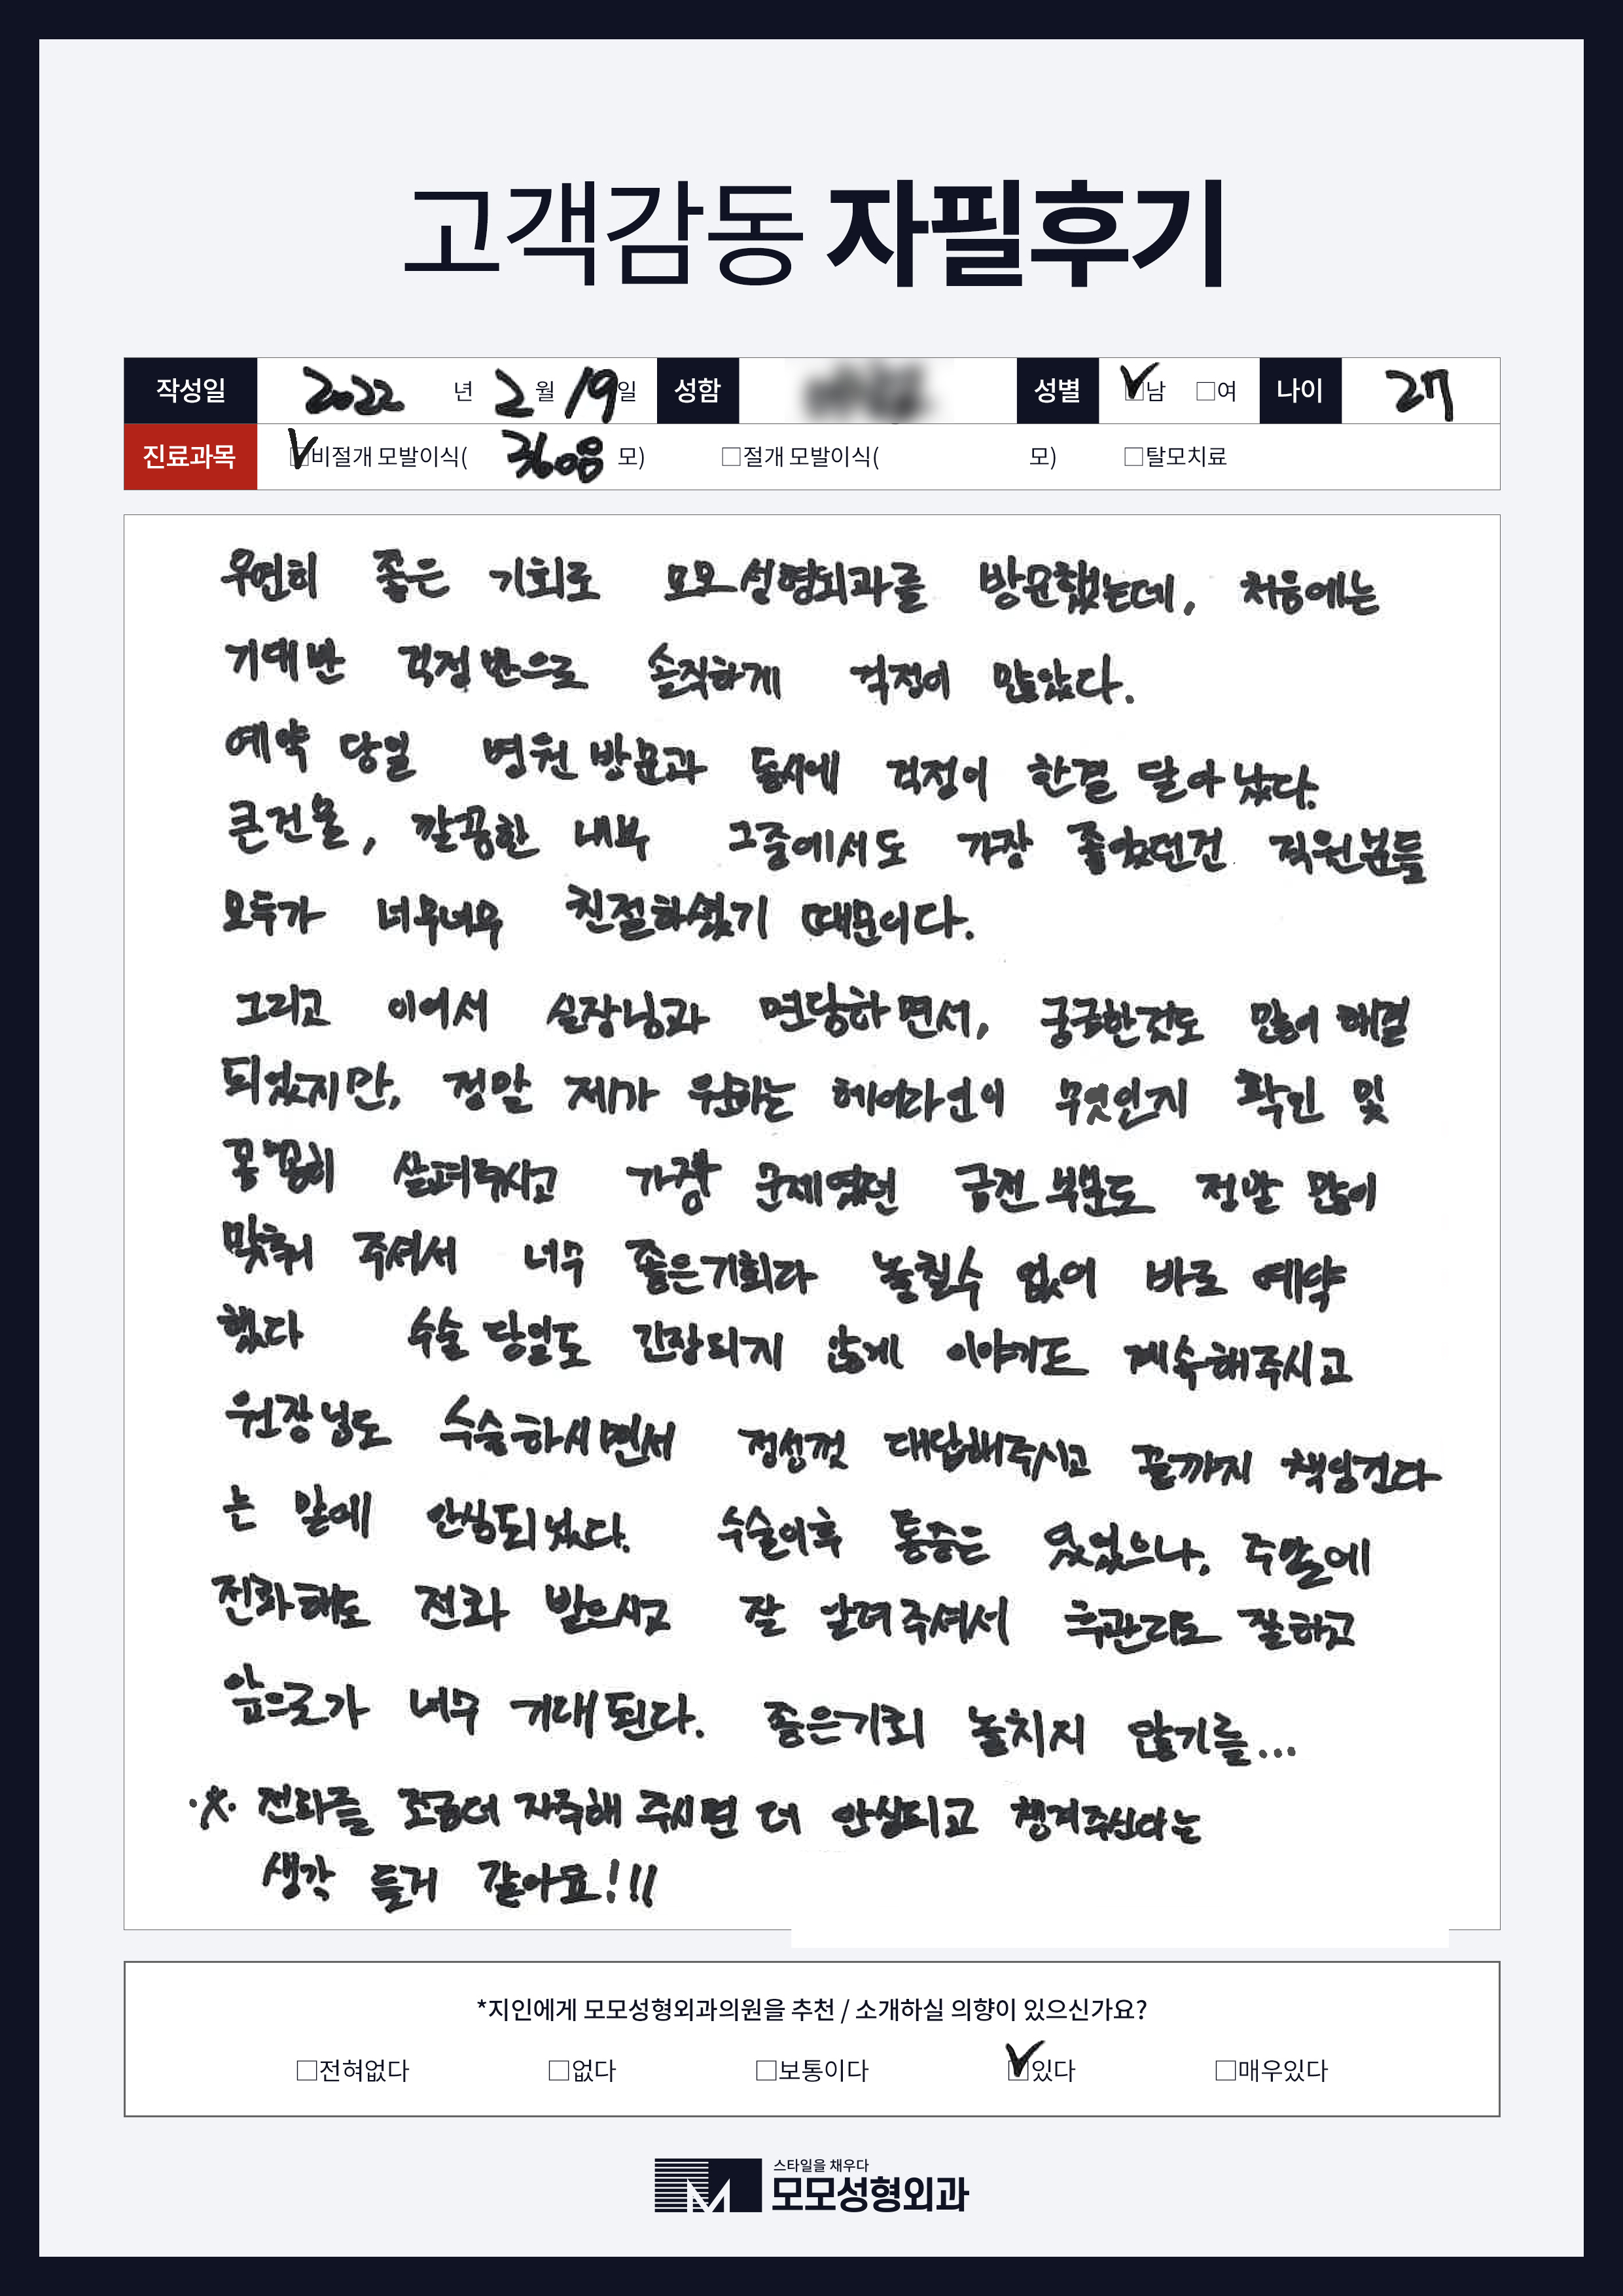 고객감동 자필후기
작성일 2022 년 2 월 19 일 성함 성별 □남 □여 나이 27
진료과목 □비절개 모발이식( 3600 모) □절개 모발이식( 모) □탈모치료
우연히 좋은 기회로 모모성형외과를 방문했는데, 처음에는
기대반 걱정반으로 솔직하게 걱정이 많았다.
예약 당일 병원 방문과 동시에 걱정이 한결 달아났다.
큰건물, 깔끔한 내부 그중에서도 가장 좋았던건 직원분들
모두가 너무너무 친절하셨기 때문이다.
그리고 이어서 실장님과 면담하면서, 궁금한것도 많이 해결
되었지만, 정말 제가 원하는 헤어라인이 무엇인지 확인 및
꼼꼼히 살펴주시고 가장 문제였던 금전 부분도 정말 많이
맞춰 주셔서 너무 좋은기회라 놓칠수 없어 바로 예약
했다 수술 당일도 긴장되지 않게 이야기도 계속해주시고
원장님도 수술하시면서 정성껏 대답해주시고 끝까지 책임진다
는 말에 안심되었다. 수술이후 통증은 있었으나, 주말에
전화해도 전화 받으시고 잘 알려주셔서 후관리도 잘하고
앞으로가 너무 기대된다. 좋은기회 놓치지 않기를...
※ 전화를 조금더 자주해 주시면 더 안심되고 챙겨주신다는
생각 들거 같아요!!!
*지인에게 모모성형외과의원을 추천 / 소개하실 의향이 있으신가요?
□전혀없다 □없다 □보통이다 □있다 □매우있다
스타일을 채우다
모모성형외과